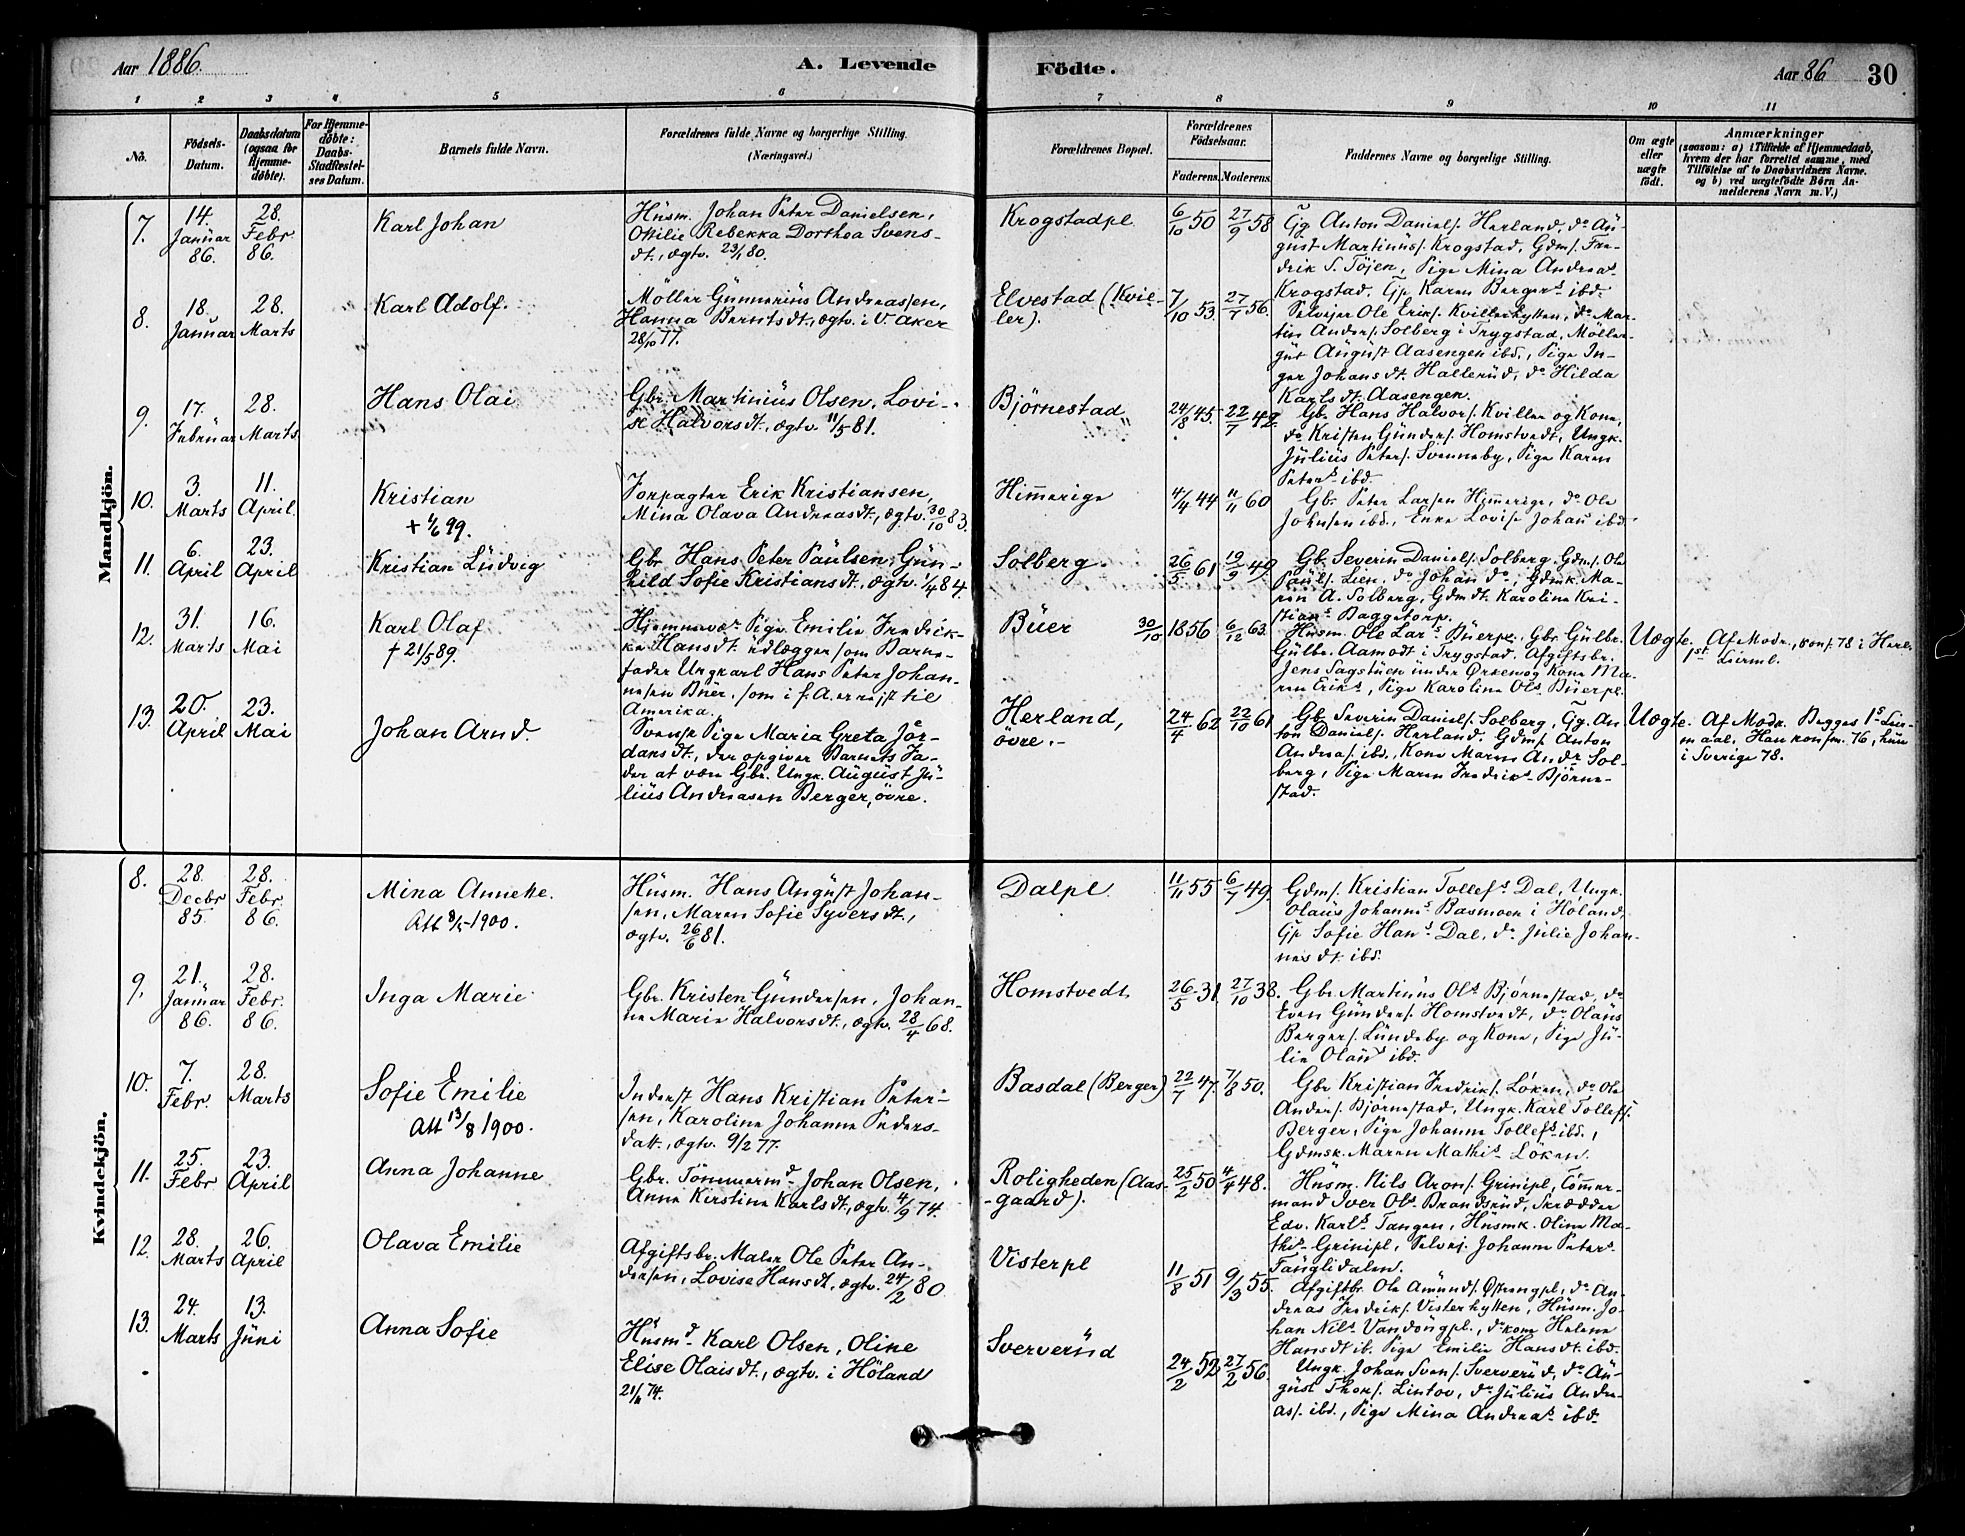 Aar 1886.
A. Levende
Födte.
Aar 86
30
1 2 3 4 5 6 7 8 9 10 11
No.
Födsels-
Datum.
Daabsdatum
(ogsaa for
Hjemme-
döbte).
For Hjemme-
döbte:
Daabs-
Stadfæstel-
ses Datum.
Barnets fulde Navn.
Forældrenes fulde Navne og borgerlige Stilling.
(Næringsvei.)
Forældrenes Bopæl.
Forældrenes
Födselsaar.
Faderens. Moderens.
Faddernes Navne og borgerlige Stilling.
Om ægte
eller
uægte
født.
Anmærkninger
(saasom: a) i Tilfælde af Hjemmedaab,
hvem der har forrettet samme, med
Tilföielse af to Daabsvidners Navne.
og b) ved uægtefödte Börn An-
melderens Navn m. V.)
Mandkjön.
7.
14.
Januar
86.
28.
Febr.
86.
Karl Johan
Husm. Johan Peter Danielsen,
Otilie Rebekka Dorthea Svens-
dt., ægtv. 23/1 80.
Krogstadpl.
6/10 50
27/9 58
Gg. Anton Daniels. Herland, do Au-
gust Martinius. Krogstad, Gdms. Fre-
drik S. Töjen, Pige Mina Andreas.
Krogstad. Gp. Karen Bergers ibd.
8.
18.
Januar
28.
Marts
Karl Adolf.
Möller Gunnerius Andreassen,
Hanna Berntsdt., ægtv. i V. Aker
28/10 77.
Elvestad (Kvil-
ler).
7/10 53.
27/7 56.
Selvejer Ole Eriks. Killerhytten, do Mar-
tin Anders. Solberg i Trygstad, Möller-
gut August Aasengen ibd., Pige In-
ger Johansdt. Hallerud, do Hilda
Karlsdt. Aasengen.
9.
17.
Februar
28.
Marts.
Hans Olai
Gbr. Martinius Olsen, Lovi-
se Halvorsdt., ægtv. 11/5 81.
Björnestad
24/8 45.
22/7 42.
Gb. Hans Halvors. Kviller og Kone,
do Kristen Gunders. Homstvedt, Ungk.
Julius Peters. Svenneby, Pige Karen
Peters ibd.
10.
3.
Marts
11.
April.
Kristian
+ 4/6 99.
Forpagter Erik Kristiansen,
Mina Olava Andreasdt., ægtv. 30/10 83.
Himmerige
4/4 44
11/11 60
Gb. Peter Larsen Himmerige, do Ole
Johnsen ibd., Enke Lovise Johan ibd.
11.
6.
April
23.
April
Kristian Ludvig
Gbr. Hans Peter Paulsen, Gun-
hild Sofie Kristiansdt., ægtv. 1/4 84.
Solberg.
26/5 61
19/9 49
Gb. Severin Daniels. Solberg. Gdms. Ole
Pauls. Lien, do Johan do, Gdmk. Ma-
ren A. Solberg, Gdmdt. Karoline Kri-
stians Baggetorp.
12.
31.
Marts
16.
Mai
Karl Olaf
† 21/5 89.
Hjemmevær. Pige Emilie Fredrik-
ke Hansdt. udlægger som Barne-
fader Ungkarl Hans Peter Johan-
nesen Buer, som i f. A. er rejst til
Amerika.
Buer
30/10 1856
6/12 63.
Husm. Ole Lars Buerpl., Gbr. Gulbr.
Gulbr. Aamodt i Trygstad. Afgiftsbr.
Jens Sagstuen under Ørkenög Kone Ma-
ren Eriks, Pige Karoline Ols. Buerpl.
Uægte.
Af Modr., konf. 78 i Herl.
1st Leirml.
13.
20.
April
23.
Mai
Johan Arnd.
Svensk Pige Maria Greta Jör-
dansdt., der opgiver Barnets Fa-
der at være Gbr. Ungk. August Ju-
lius Andreasen Berger, övre.
Herland,
övre.-
24/4 62
22/10 61
Gb. Severin Daniels. Solberg, Gg. An-
ton Daniels. Herland. Gdms. Anton
Andreas. ibd., Kone Maren Andr. Sol-
berg, Pige Maren Fredriks Björne-
stad.
Uægte.
Af Modr. Begges 1s Lei-
maal. Han konfm. 76, hun
i Sverige 78.
Kvindekjön.
8.
28.
Decbr
85.
28.
Febr.
86.
Mina Annette.
Att 8/5-1900.
Husm. Hans August Johan-
sen, Maren Sofie Syversdt.,
ægtv. 26/6 81.
Dalpl.
11/11 55
6/7 49.
Gdms. Kristian Tollefs Dal, Ungk.
Olaus Johanns Basmoen i Höland,
Gp Sofie Hans Dal, do Julie Johan-
nesdt. ibd.
9.
21.
Januar
86.
28.
Febr.
86.
Inga Marie
Gbr. Kristen Gundersen, Johan-
ne Marie Halvorsdt., ægtv. 28/4 68.
Homstvedt
26/5 31
27/10 38.
Gbr. Martinius Ols Björnestad, do
Even Gunders. Homstvedt, do Olaus
Bergers. Lundeby og Kone, Pige Ju-
lie Olaus ibd.
10.
7.
Febr.
28.
Marts
Sofie Emilie
Att 13/8 1900.
Inderst Hans Kristian Peter-
sen, Karoline Johanne Peders-
datt., ægtv. 9/2 77.
Basdal (Berger)
22/7 47.
7/8 50.
Gbr. Kristian Fredriks. Löken, do Ole
Anders. Björnestad, Ungk. Karl Tollefs.
Berger, Pige Johanne Tollefs ibd.,
Gdmsk. Maren Mathis Löken.
11.
25.
Febr.
23.
April
Anna Johanne
Gbr. Tömmermd. Johan Olsen,
Anne Kirstine Karlsdt., ægtv. 4/9 74.
Roligheden (Aas-
-gaard).
25/2 50
4/4 48.
Husm. Nils Arons. Grinipl., Tömmer-
mand Iver Ols. Brandsrud, Skrædder
Edv. Karls. Tangen, Husmk. Oline Ma-
this Grinipl., Selvej. Johanne Peters.
Tanglidalen.
12.
28.
Marts
26.
April
Olava Emilie
Afgiftsbr. Maler Ole Peter An-
dersen, Lovise Hansdt., ægtv. 24/2 80
Visterpl
11/8 51
9/3 55.
Afgiftbr. Ole Amunds. Østengpl., do An-
dreas Fredriks. Visterhytten, Husm. Jo-
han Nils. Vandöngpl., do kone Helene
Hansdt. ib. Pige Emilie Hansdt. ibd.
13.
24.
Marts
13.
Juni
Anna Sofie
Husmd. Karl Olsen, Oline
Elise Olaisdt., ægtv. i Höland
21/11 74.
Sververud
24/2 52
27/2 56.
Ungk. Johan Svens. Sververud, do Au-
gust Thors. Lintov, do Julius Andre-
ass. ibd., Pige Mina Andreas ibd.